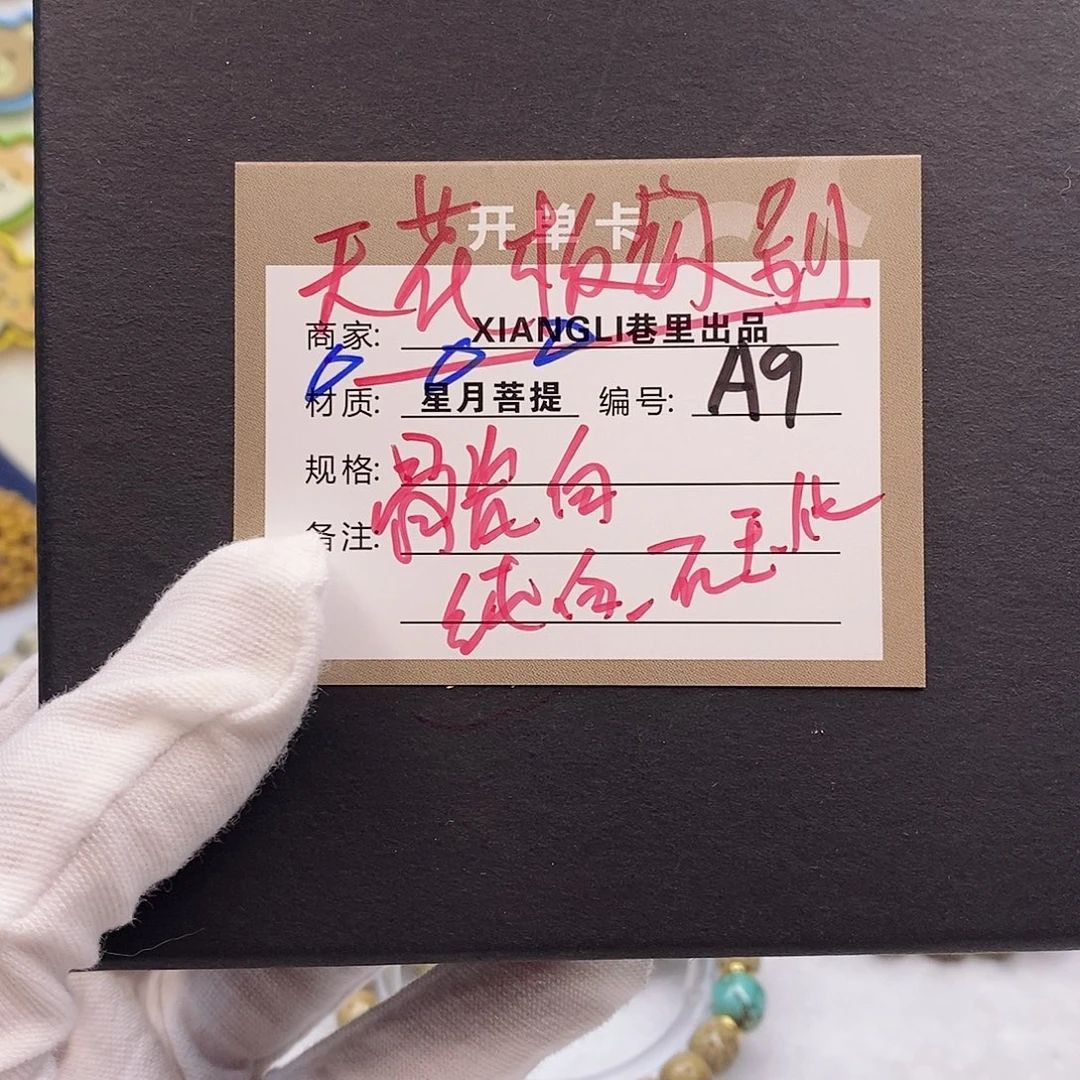 开单卡
天花板级别
商家: XIANGLI巷里出品
材质: 星月菩提 编号: A9
规格: 骨瓷白
备注:
纯白、石玉化